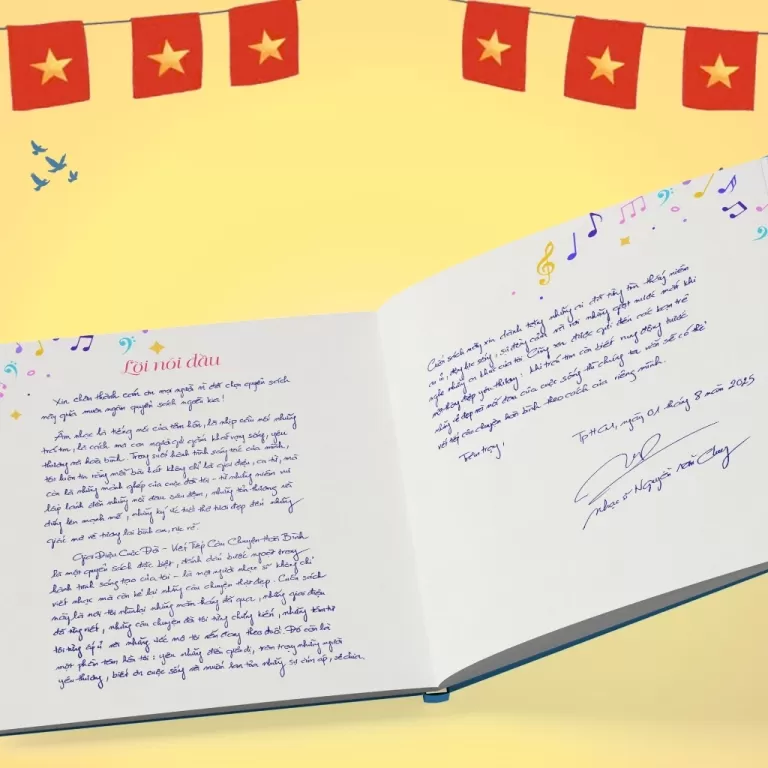 Lời nói đầu
Xin chân thành cảm ơn mọi người vì đã chọn quyển sách
này giữa muôn ngàn quyển sách ngoài kia!
Âm nhạc là tiếng nói của tâm hồn, là nhịp cầu nối những
trái tim, là cách mà con người gửi gắm khát vọng sống, yêu
thương và hoà bình. Trong suốt hành trình sáng tác của mình,
tôi luôn tin rằng mỗi bài hát không chỉ là giai điệu, ca từ, mà
còn là những mảnh ghép của cuộc đời tôi - từ những niềm vui
lấp lánh đến những nỗi đau sâu đậm, những tổn thương và
đứng lên mạnh mẽ, những ký ức tuổi thơ tươi đẹp đến những
giấc mơ về tương lai bình an, rực rỡ.
Giai Điệu Cuộc Đời - Viết Tiếp Câu Chuyện Hoà Bình
là một quyển sách đặc biệt, đánh dấu bước ngoặt trong
hành trình sáng tạo của tôi - là một người nhạc sĩ không chỉ
viết nhạc mà còn kể lại những câu chuyện thật đẹp. Cuốn sách
này là nơi tôi nhìn lại những năm tháng đã qua, những giai điệu
đã từng viết, những câu chuyện đã từng chứng kiến, những tâm tư
tôi từng ấp ủ và những ước mơ tôi vẫn đang theo đuổi. Đó còn là
một phần tâm hồn tôi: yêu những điều giản dị, trân trọng những người
yêu thương, biết ơn cuộc sống và muốn lan tỏa những sự ấm áp, sẻ chia.
Cuốn sách này xin dành tặng những ai đã từng tìm thấy niềm
an ủi, động lực sống, sự đồng cảm và rơi những giọt nước mắt khi
nghe những ca khúc của tôi. Cũng xin được gửi đến các bạn trẻ
một thông điệp yêu thương: khi trái tim còn biết rung động trước
những vẻ đẹp và nỗi đau của cuộc sống thì chúng ta vẫn sẽ có thể
viết tiếp câu chuyện hoà bình theo cách của riêng mình.
Trân trọng!
TpHCM, ngày 01 tháng 8 năm 2025
Nhạc sĩ Nguyễn Văn Chung